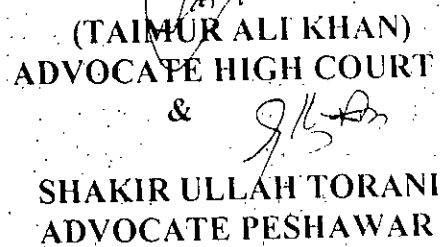 (TAIMUR ALI KHAN)
ADVOCATE HIGH COURT
&
SHAKIR ULLAH TORANI
ADVOCATE PESHAWAR